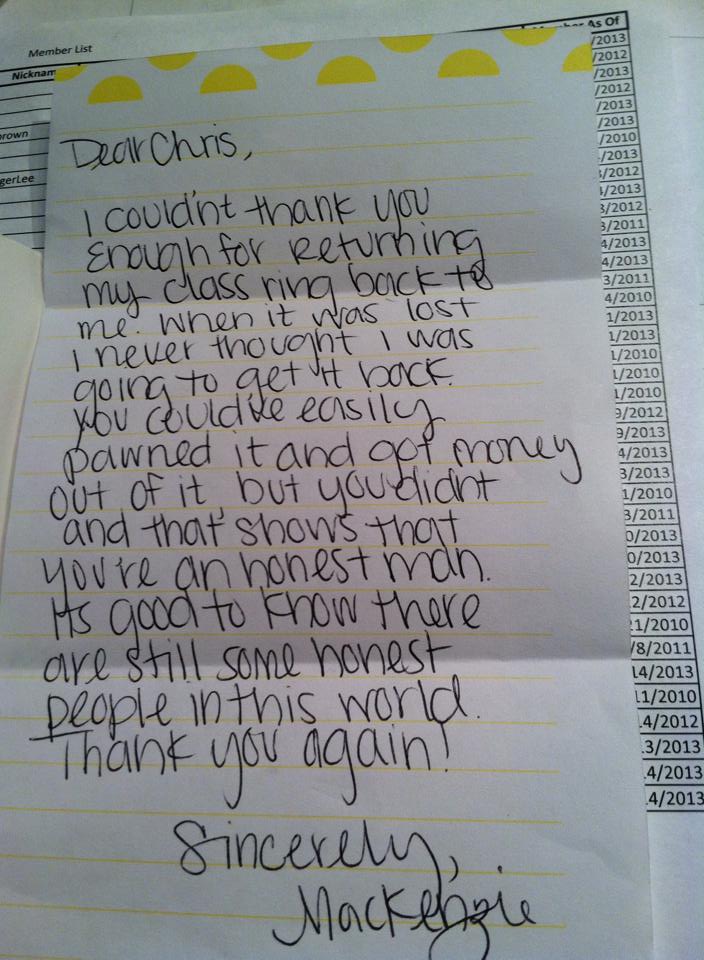 Member List
Member As Of
Nicknam
rown
gerLee
/2013
/2012
/2013
/2012
/2013
/2013
/2010
/2013
/2012
/2013
3/2012
/2011
4/2013
4/2013
3/2011
4/2010
1/2013
1/2013
1/2010
1/2010
1/2010
9/2012
9/2013
4/2013
3/2013
1/2010
3/2011
0/2013
0/2013
2/2013
2/2012
1/2010
/8/2011
14/2013
11/2010
4/2012
3/2013
4/2013
4/2013
Dear Chris,
I could'nt thank you
enough for returning
my class ring back to
me. when it was lost
I never thought I was
going to get it back.
you could've easily
pawned it and got money
out of it, but you didnt
and that shows that
you're an honest man.
Its good to know there
are still some honest
people in this world.
Thank you again!
Sincerely,
Mackenzie